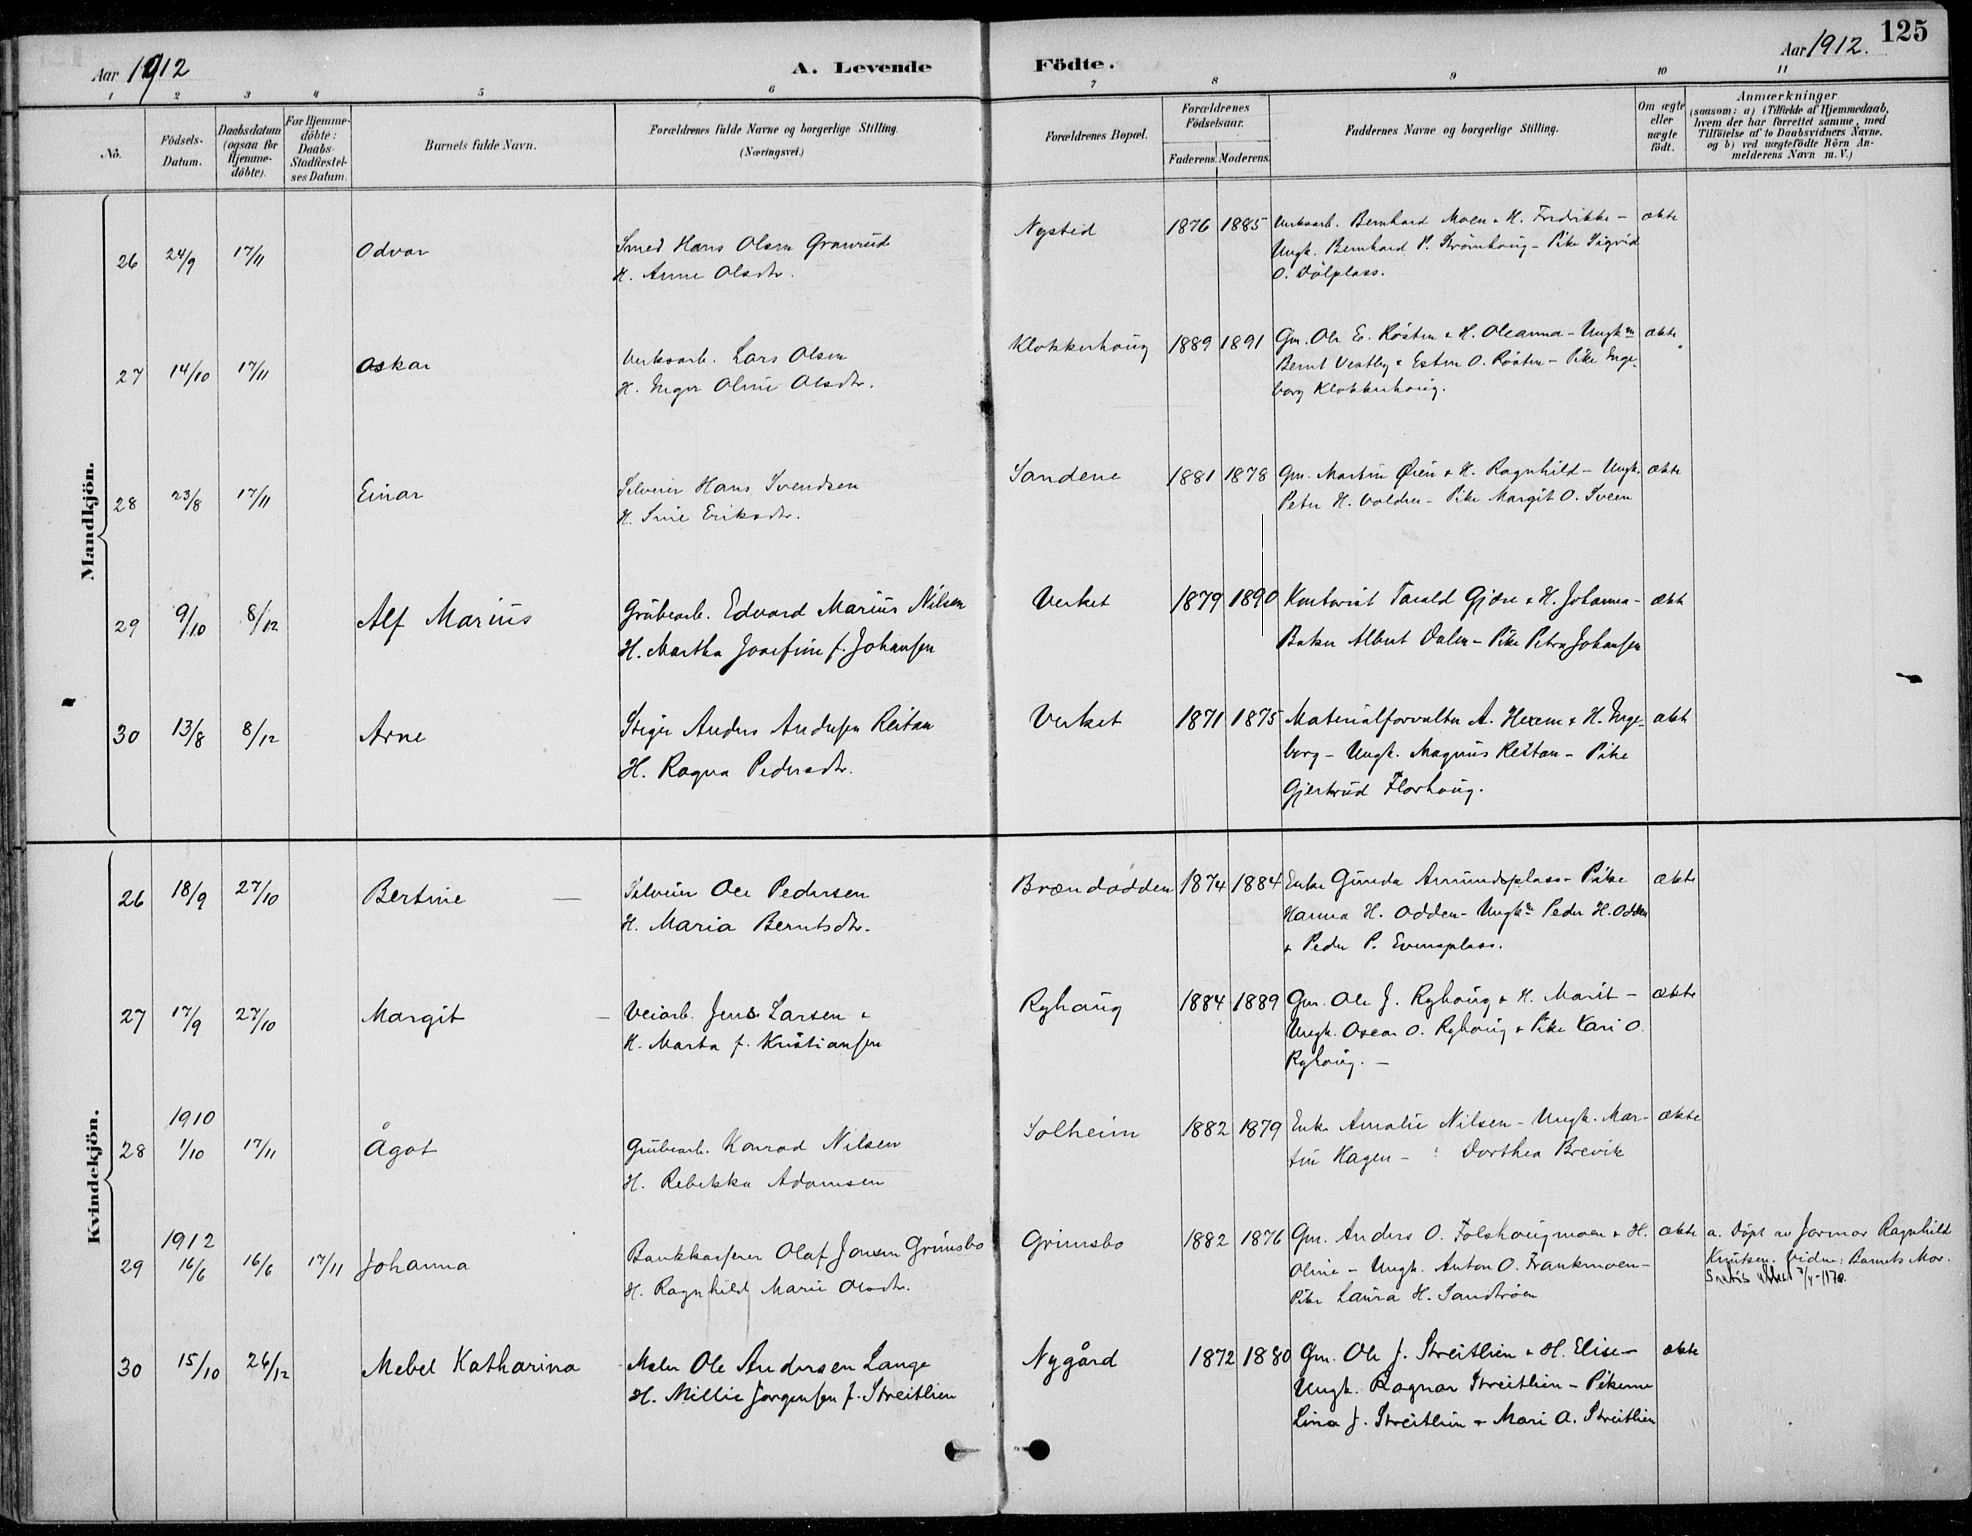 Aar 1912
A. Levende Födte.
Aar 1912.
125
1 2 3 4 5 6 7 8 9 10 11
Nö.
Födsels-Datum.
Daabsdatum (ogsaa for Hjemme-döbte).
For Hjemme-döbte: Daabs-Stadfæstel-ses Datum.
Barnets fulde Navn.
Forældrenes fulde Navne og borgerlige Stilling.
(Næringsvei.)
Forældrenes Bopæl.
Forældrenes Födselsaar.
Faderens. Moderens.
Faddernes Navne og borgerlige Stilling.
Om ægte eller uægte födt.
Anmærkninger
(saasom: a) i Tilfælde af Hjemmedaab,
hvem der har forrettet samme, med
Tilföielse af to Daabsvidners Navne,
og b) ved uægtefödte Börn An-
melderens Navn m. V.)
Mandkjön.
26 24/9 17/11 Odvar
Smed Hans Olsen Granrud
H. Anne Olsdtr.
Nystid 1876 1885
Verksarb. Bernhard Moen & H. Fredrikke –
Ungk. Bernhard P. Strömhaug – Pike Sigrid
O. Dölplass.
ækte
27 14/10 17/11 Oskar
Verksarb. Lars Olsen
H. Inger Oline Olsdtr.
Klokkerhaug 1889 1891
Gm. Ole E. Rösten & H. Oleanna – Ungkm
Bernt Vestby & Esten O. Rösten – Pike Inge-
borg Klokkerhaug.
ækte
28 23/8 17/11 Einar
Selveier Hans Svendsen
H. Sine Eriksdtr.
Sandene 1881 1878
Gm. Martin Øien & H. Ragnhild – Ungk.
Peter H. Volden – Pike Margit O. Sveen
ækte
29 9/10 8/12 Alf Marius
Grubearb. Edvard Marius Nilsen
H. Martha Josefine f. Johansen
Verket 1879 1890
Kontorist Tarald Gjöre & H. Johanna –
Baker Albert Dalen – Pike Petra Johansen
ækte
30 13/8 8/12 Arne
Stiger Anders Andersen Reitan
H. Ragna Pedersdtr.
Verket 1871 1875
Materialforvalter A. Hexem & H. Inge-
borg – Ungk. Magnus Reitan – Pike
Gjertrud Florhaug.
ækte
Kvindekjön.
26 18/9 27/10 Bertine –
Selveier Ole Pedersen
H. Maria Berntsdtr.
Brændodden 1874 1884
Enke Gunda Amundsplass – Pike
Hanna H. Odden – Ungkm Peder H. Odden
& Peder P. Evensplass.
ækte
27 17/9 27/10 Margit –
Veiarb. Jens Larsen &
H. Marta f. Kristiansen
Ryhaug 1884 1889
Gm. Ole J. Ryhaug & H. Marit –
Ungk. Oscar O. Ryhaug & Pike Kari O.
Ryhaug. –
ækte
28 1910 1/10 17/11 Ågot
Grubearb. Konrad Nilsen
H. Rebekka Adamsen
Solheim 1882 1879
Enke Amalie Nilsen – Ungk. Mar-
tin Hagen – Dorthea Brevik
ækte
29 1912 16/6 16/6 17/11 Johanna
Bankkasserer Olaf Jonsen Grimsbo
H. Ragnhild Marie Olsdtr.
Grimsbo 1882 1876
Gm. Anders O. Folshaugmoen & H.
Oline – Ungk. Anton O. Frankmoen –
Pike Laura H. Sandtröen
ækte
a. Döpt av Jormor Ragnhild
Knutsen. Vidne: Barnets Mor.
30 15/10 26/12 Mebel Katharina
Maler Ole Andersen Lange
H. Millie Jörgensen f. Streitlien
Nygård 1872 1880
Gm. Ole J. Streitlien & H. Elise –
Ungk. Ragnar Streitlien – Pikerne
Lina J. Streitlien & Mari A. Streitlien
ækte